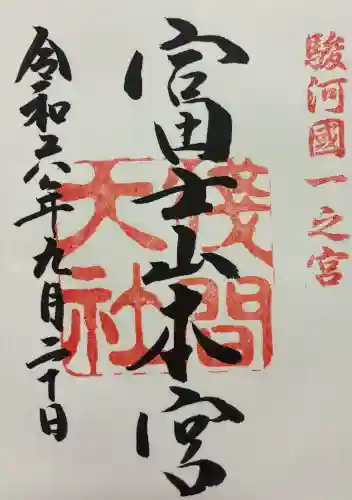 駿河國一之宮
富士山本宮
淺間
天社
令和六年九月二十日